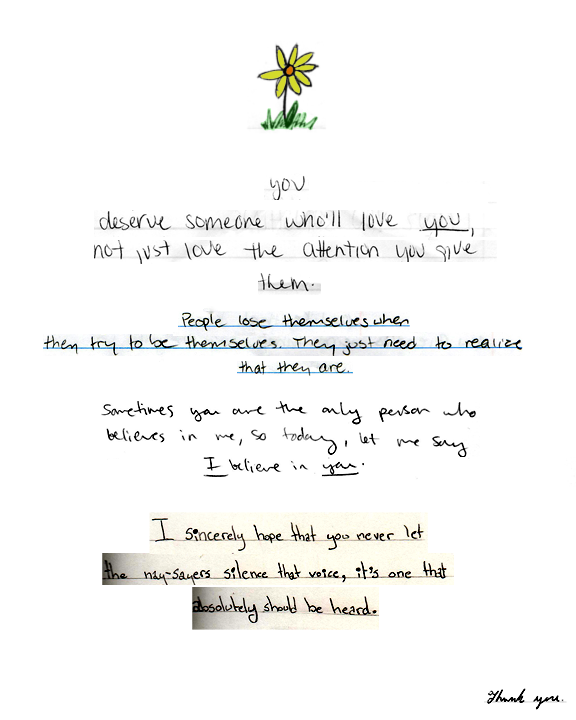 you
deserve someone who'll love you,
not just love the attention you give
them.
People lose themselves when
then try to be themselves. They just need to realize
that they are.
Sometimes you are the only person who
believes in me, so today, let me say
I believe in you.
I sincerely hope that you never let
the nay-sayers silence that voice, it's one that
absolutely should be heard.
Thank you.